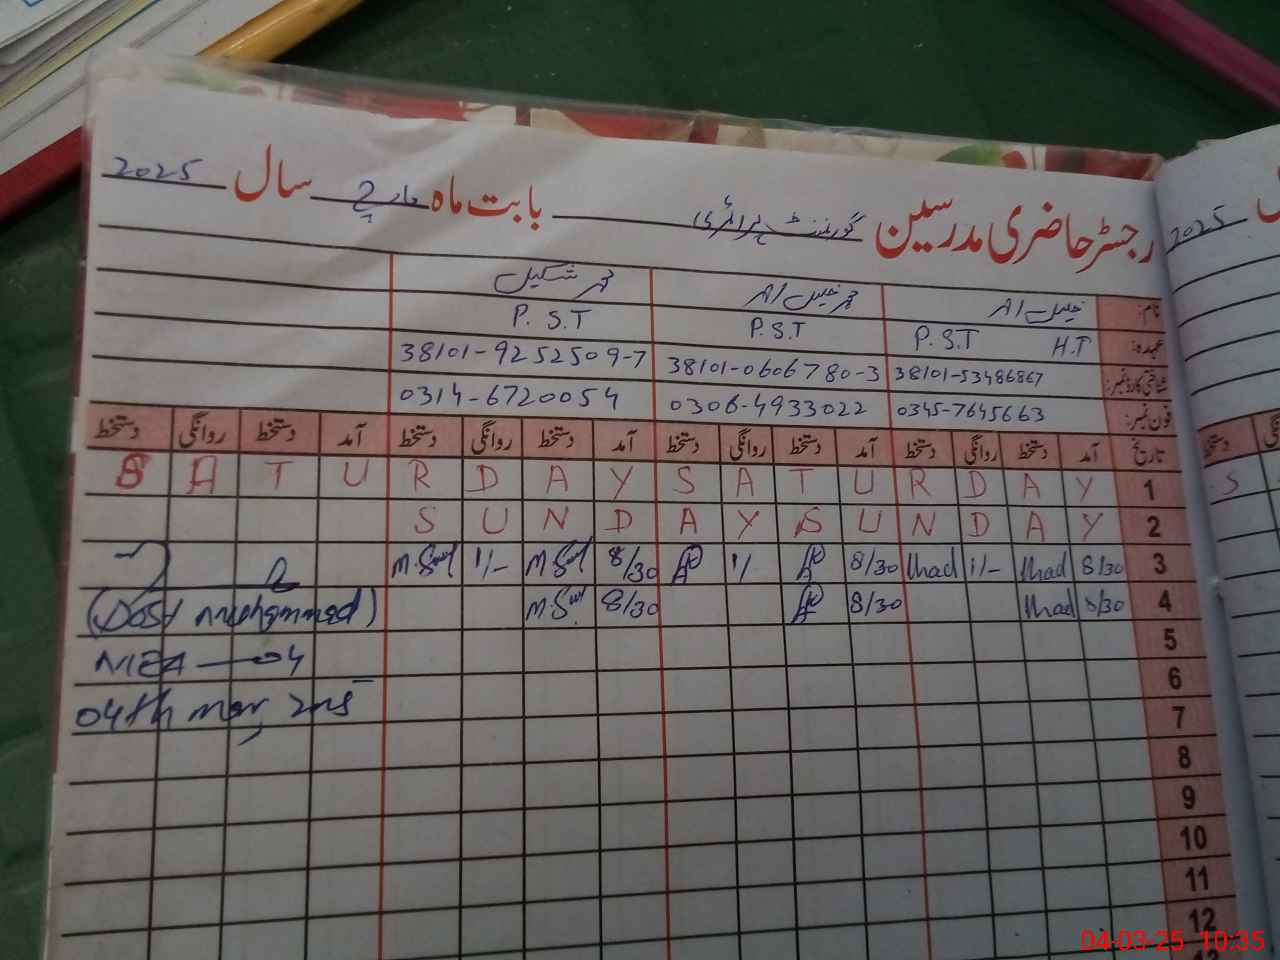 رجسٹر حاضری مدرسین گورنمنٹ پرائمری بابت ماہ مارچ سال 2025
نام: محمد شکیل
عہدہ: P.S.T H.T P.S.T P.S.T
شناختی کارڈ نمبر: 38101-53486867 38101-0606780-3 38101-9252509-7
فون نمبر: 0345-7645663 0306-4933022 0314-6720054
تاریخ آمد دستخط روانگی دستخط آمد دستخط روانگی دستخط آمد دستخط روانگی دستخط آمد دستخط روانگی دستخط
S A T U R D A Y S A T U R D A Y 1
S U N D A Y S U N D A Y 2
1/- 8/30 1/. 8/30 1/- 8/30 3
(Dost Muhammad) 8/30 8/30 8/30 4
04 5
04th Mar, 2025 6
7
8
9
10
11
12
13
2025
04-03-25 10:35